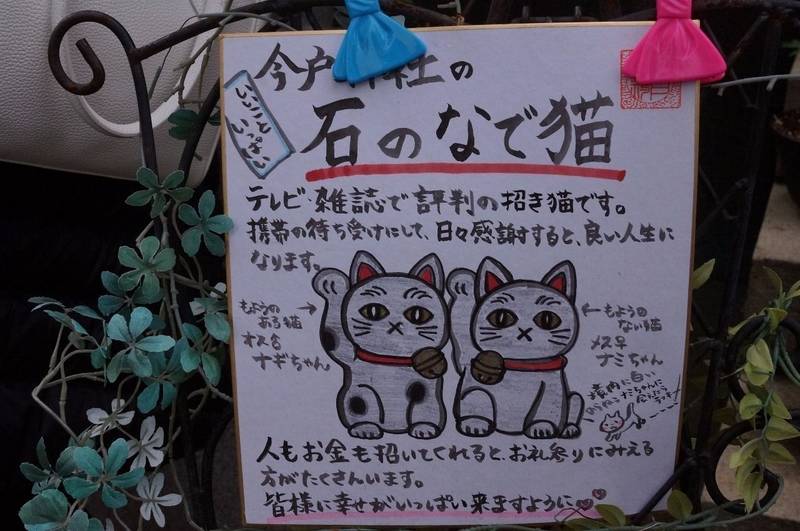 今戸神社の
いいこと
いっぱい
石のなで猫
テレビ・雑誌で評判の招き猫です。
携帯の待ち受けにして、日々感謝すると、良い人生に
なります。
もようの
ある猫
オス♂
ナギちゃん
もようの
ない猫
メス♀
ナミちゃん
境内に白い
ナミちゃんに
人もお金も招いてくれると、お礼参りにみえる
方がたくさんいます。
皆様に幸せがいっぱい来ますように